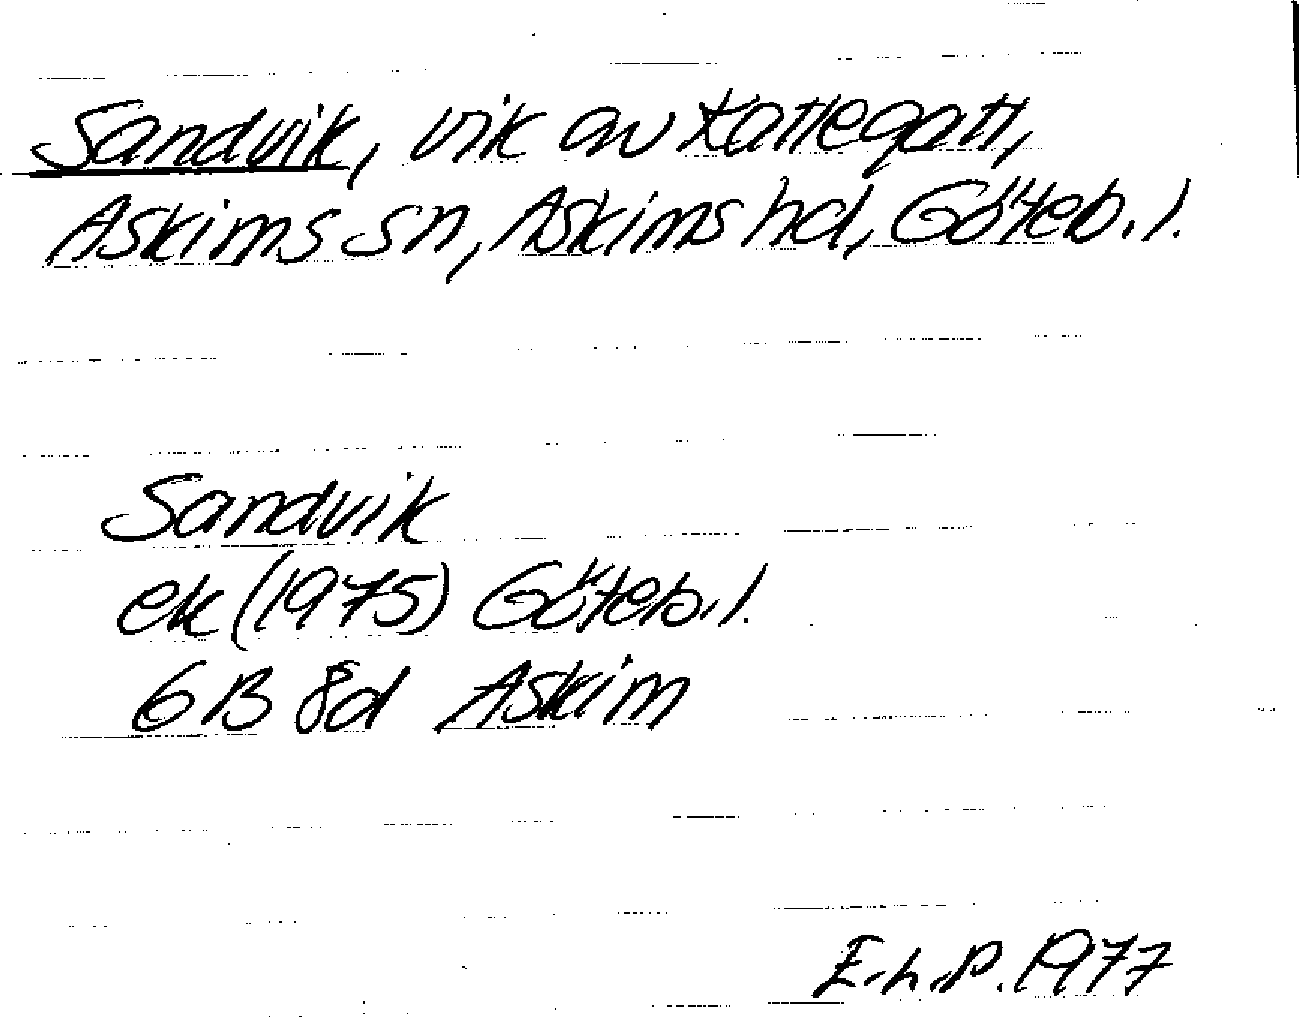 Sandvik, vik av Kattegatt,
Askims sn, Askims hd, Göteb. l.
Sandvik
ek (1975) Göteb. l.
6B 8d Askim
E.h.P. 1977